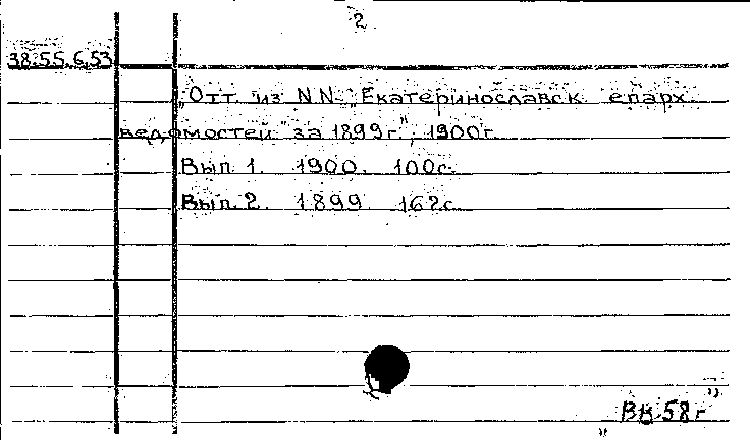 2
38.55.6.53
„Отт. из N.N. „Екатеринославск. епарх.
ведомостей" за 1899г.", 1900г.
Вып. 1. 1900. 100с.
Вып. 2. 1899. 162с.
ВВ 58г"